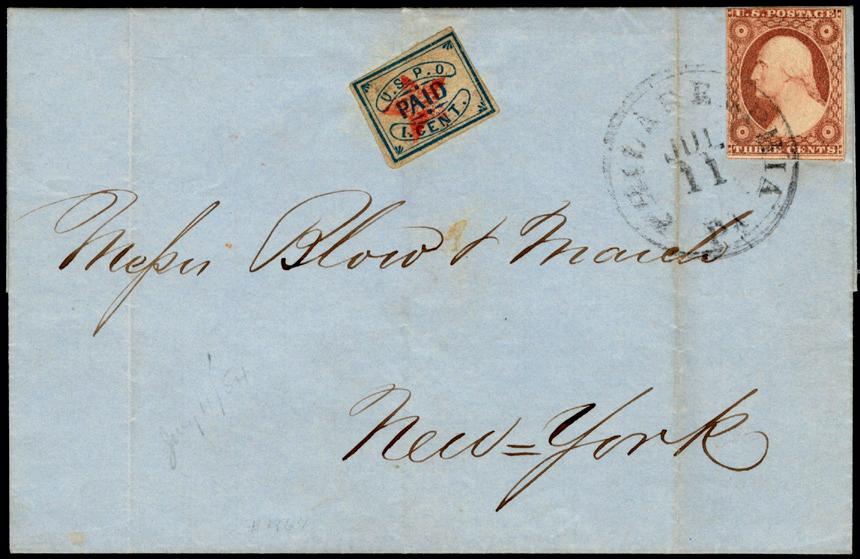 U.S.P.O.
PAID
1.CENT.
U.S. POSTAGE
THREE CENTS
PHILADELPHIA
JUL
11
Pa
Messrs Blow & March
New=York